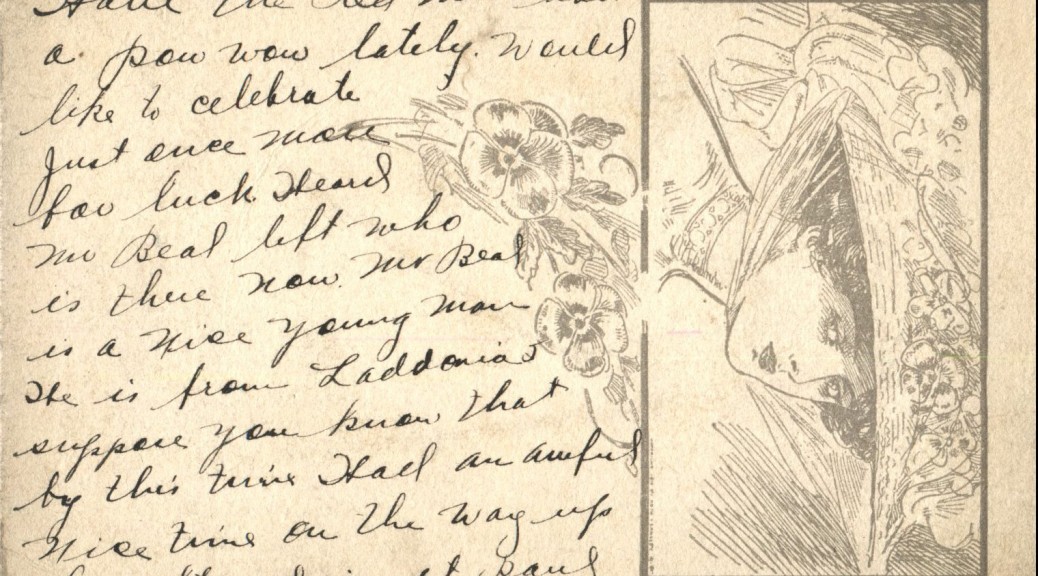 Have the
a pow wow lately. Would
like to celebrate
Just once more
for luck. Heard
Mr Beal left who
is there now. Mr Beal
is a Nice young man
He is from Laddonia I
suppose you know that
by this time Had an awful
Nice time on the way up